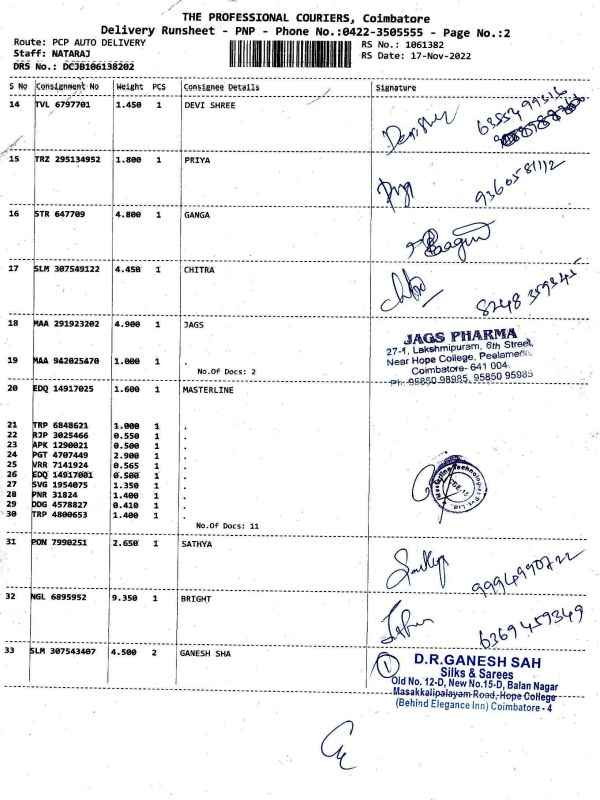 THE PROFESSIONAL COURIERS, Coimbatore
Delivery Runsheet - PNP - Phone No.:0422-3505555 - Page No.:2
Route: PCP AUTO DELIVERY
Staff: NATARAJ
DRS No.: DCJB106138202
RS No.: 1061382
RS Date: 17-Nov-2022
S No Consignment No Weight PCS Consignee Details Signature
14 TVL 6797701 1.450 1 DEVI SHREE
15 TRZ 295134952 1.800 1 PRIYA
9360581112
16 STR 647709 4.800 1 GANGA
17 SLM 307549122 4.450 1 CHITRA
8248359345
18 MAA 291923202 4.900 1 JAGS
JAGS PHARMA
27-1, Lakshmipuram, 6th Street,
Near Hope College, Peelamedu
Coimbatore- 641 004.
Ph: 95850 98985, 95850 95985
19 MAA 942025470 1.000 1 .
No.Of Docs: 2
20 EDQ 14917025 1.600 1 MASTERLINE
21 TRP 6848621 1.000 1 .
22 RJP 3025466 0.550 1 .
23 APK 1290021 0.500 1 .
24 PGT 4707449 2.900 1 .
25 VRR 7141924 0.565 1 .
26 EDQ 14917001 0.500 1 .
27 SVG 1954075 1.350 1 .
28 PNR 31824 1.400 1 .
29 DDG 4578827 0.410 1 .
30 TRP 4800653 1.400 1 .
No.Of Docs: 11
31 PON 7990251 2.650 1 SATHYA
9994990722
32 NGL 6895952 9.350 1 BRIGHT
6369459349
33 SLM 307543407 4.500 2 GANESH SHA
1
D.R.GANESH SAH
Silks & Sarees
Old No. 12-D, New No.15-D, Balan Nagar
Masakkalipalayam Road, Hope College
(Behind Elegance Inn) Coimbatore - 4